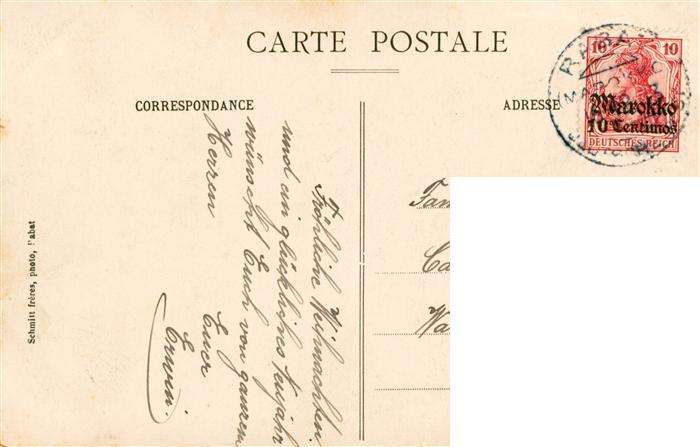 CARTE POSTALE
CORRESPONDANCE
ADRESSE
10 10
Marokko
10 Centimos
DEUTSCHES REICH
RABAT
MAROKKO
Fröhliche Weihnachten
und ein glückliches Neujahr
wünscht Euch von ganzem
Herzen
Euer
Erwin.
Schmitt frères, photo, Rabat
Fam
Ca
Wa